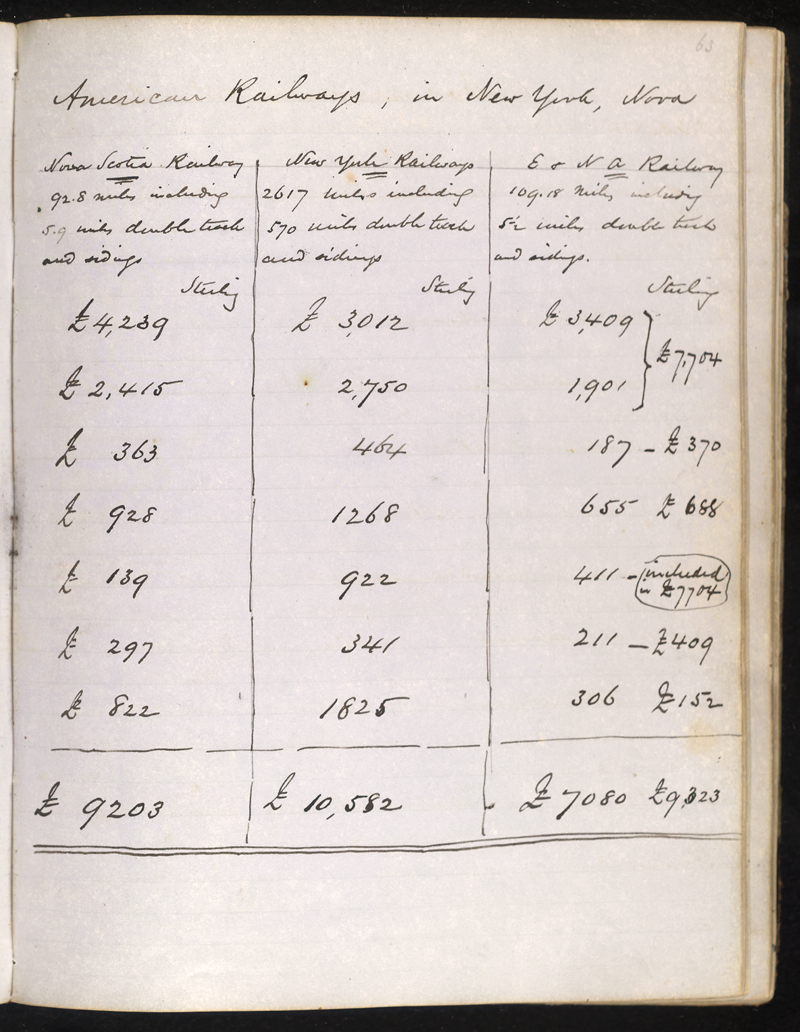 63
American Railways, in New York, Nova
Nova Scotia Railway
92.8 miles including
5.9 miles double track
and sidings
Sterling
£4,239
£2,415
£ 363
£ 928
£ 139
£ 297
£ 822
£ 9203
New York Railways
2617 miles including
570 miles double track
and sidings
Sterling
£ 3,012
2,750
464
1268
922
341
1825
£ 10,582
E & N A Railway
109.18 miles including
miles double track
and sidings.
Sterling
£ 3,409
£7,704
1,901
187 - £370
655 £688
411 - included
in £7704
211 - £409
306 £152
£7080 £9,323